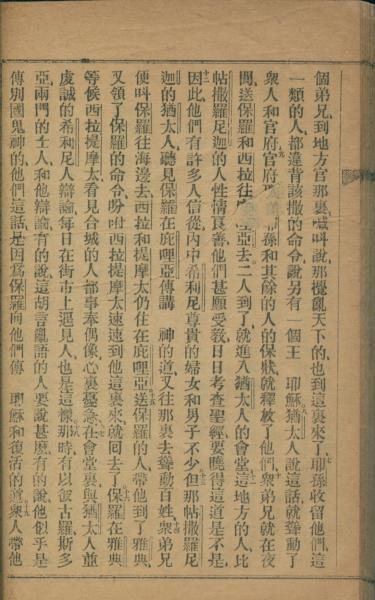 個弟兄到地方官那裏喊叫說那攪亂天下的也到這裏來了耶孫收留他們這
一類的人都違背該撒的命令說另有一個王　耶穌猶太人說這話就聳動了
衆人和官府官府耶孫和其餘的人的保狀就釋放了他們衆弟兄就在夜
間送保羅和西拉往亞去二人到了就進入猶太人的會堂這地方的人比
帖撒羅尼迦的人性情良善他們甚願受敎日日考查聖經要曉得這道是不是
因此他們有許多人信從內中希利尼尊貴的婦女和男子不少但那帖撒羅尼
迦的猶太人聽見保羅在庇哩亞傳講　神的道又往那裏去聳動百姓衆弟兄
便叫保羅往海邊去西拉和提摩太仍住在庇哩亞送保羅的人帶他到了雅典
又領了保羅的命令吩咐西拉提摩太速速到他這裏來就回去了保羅在雅典
等候西拉提摩太看見合城的人都事奉偶像心裏憂急在會堂裏與猶太人並
虔誠的希利尼人辯論每日在街市上遇見人也是這樣那時有以彼古羅斯多
亞兩門的士人和他辯論有的說這胡言亂語的人要說甚麼有的說他似乎是
傳別國鬼神的他們這話是因爲保羅向他們傳　耶穌和復活的道衆人帶他